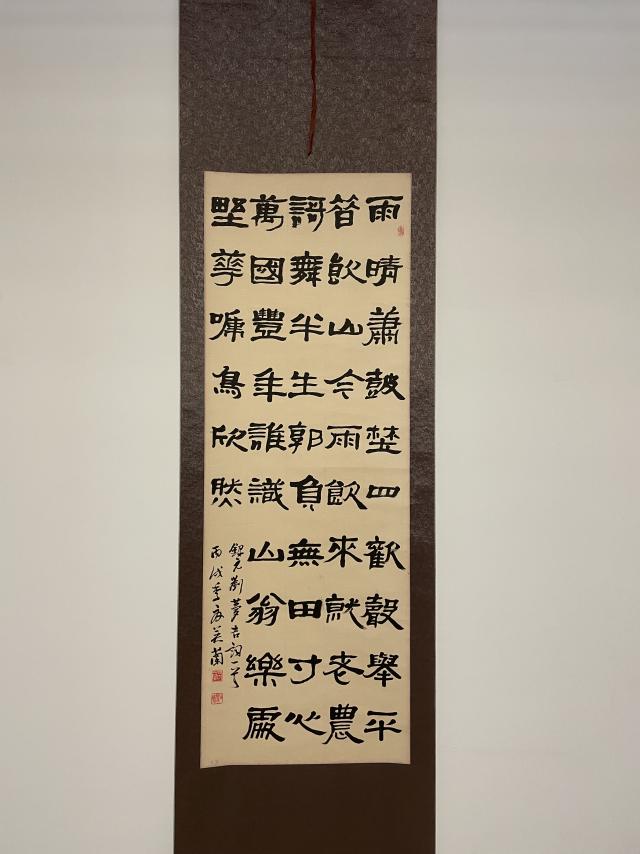 雨晴蕭鼓埜四歡聲舉平
昔飲山今雨飲來就老農
謌舞半生郭負無田寸心
萬國豐年誰識山翁樂處
埜華嗁鳥欣然
錄元劉夢吉詞一首
丙戌季